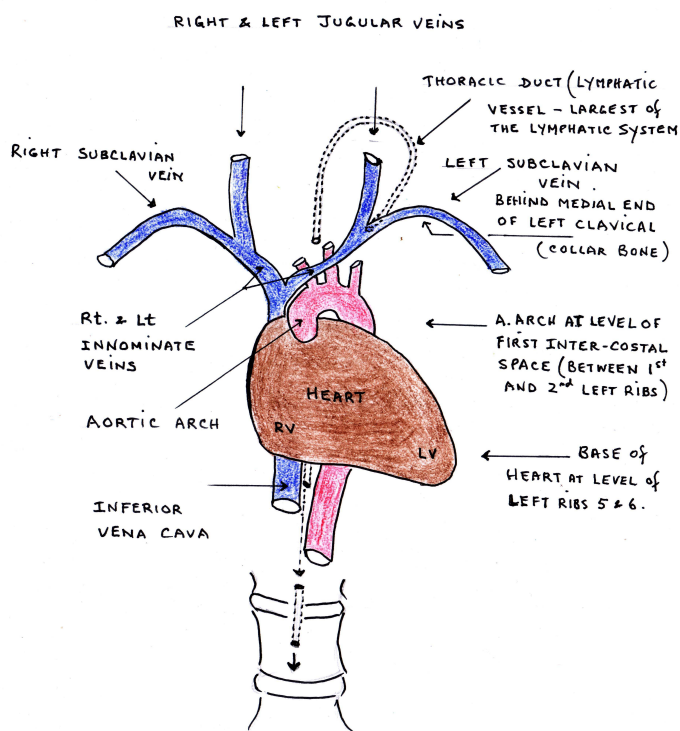 RIGHT & LEFT JUGULAR VEINS
THORACIC DUCT (LYMPHATIC
VESSEL - LARGEST OF
THE LYMPHATIC SYSTEM
RIGHT SUBCLAVIAN
VEIN
LEFT SUBCLAVIAN
VEIN.
BEHIND MEDIAL END
OF LEFT CLAVICAL
(COLLAR BONE)
Rt. & Lt
INNOMINATE
VEINS
A. ARCH AT LEVEL OF
FIRST INTER-COSTAL
SPACE (BETWEEN 1st
AND 2nd LEFT RIBS)
HEART
AORTIC ARCH
RV
LV
BASE OF
HEART AT LEVEL OF
LEFT RIBS 5 & 6.
INFERIOR
VENA CAVA